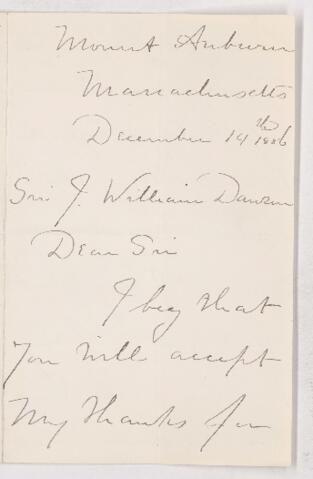 Mount Auburn
Massachusetts
December 14th 1886
Sir J. William Dawson
Dear Sir
I beg that
You will accept
My thanks for